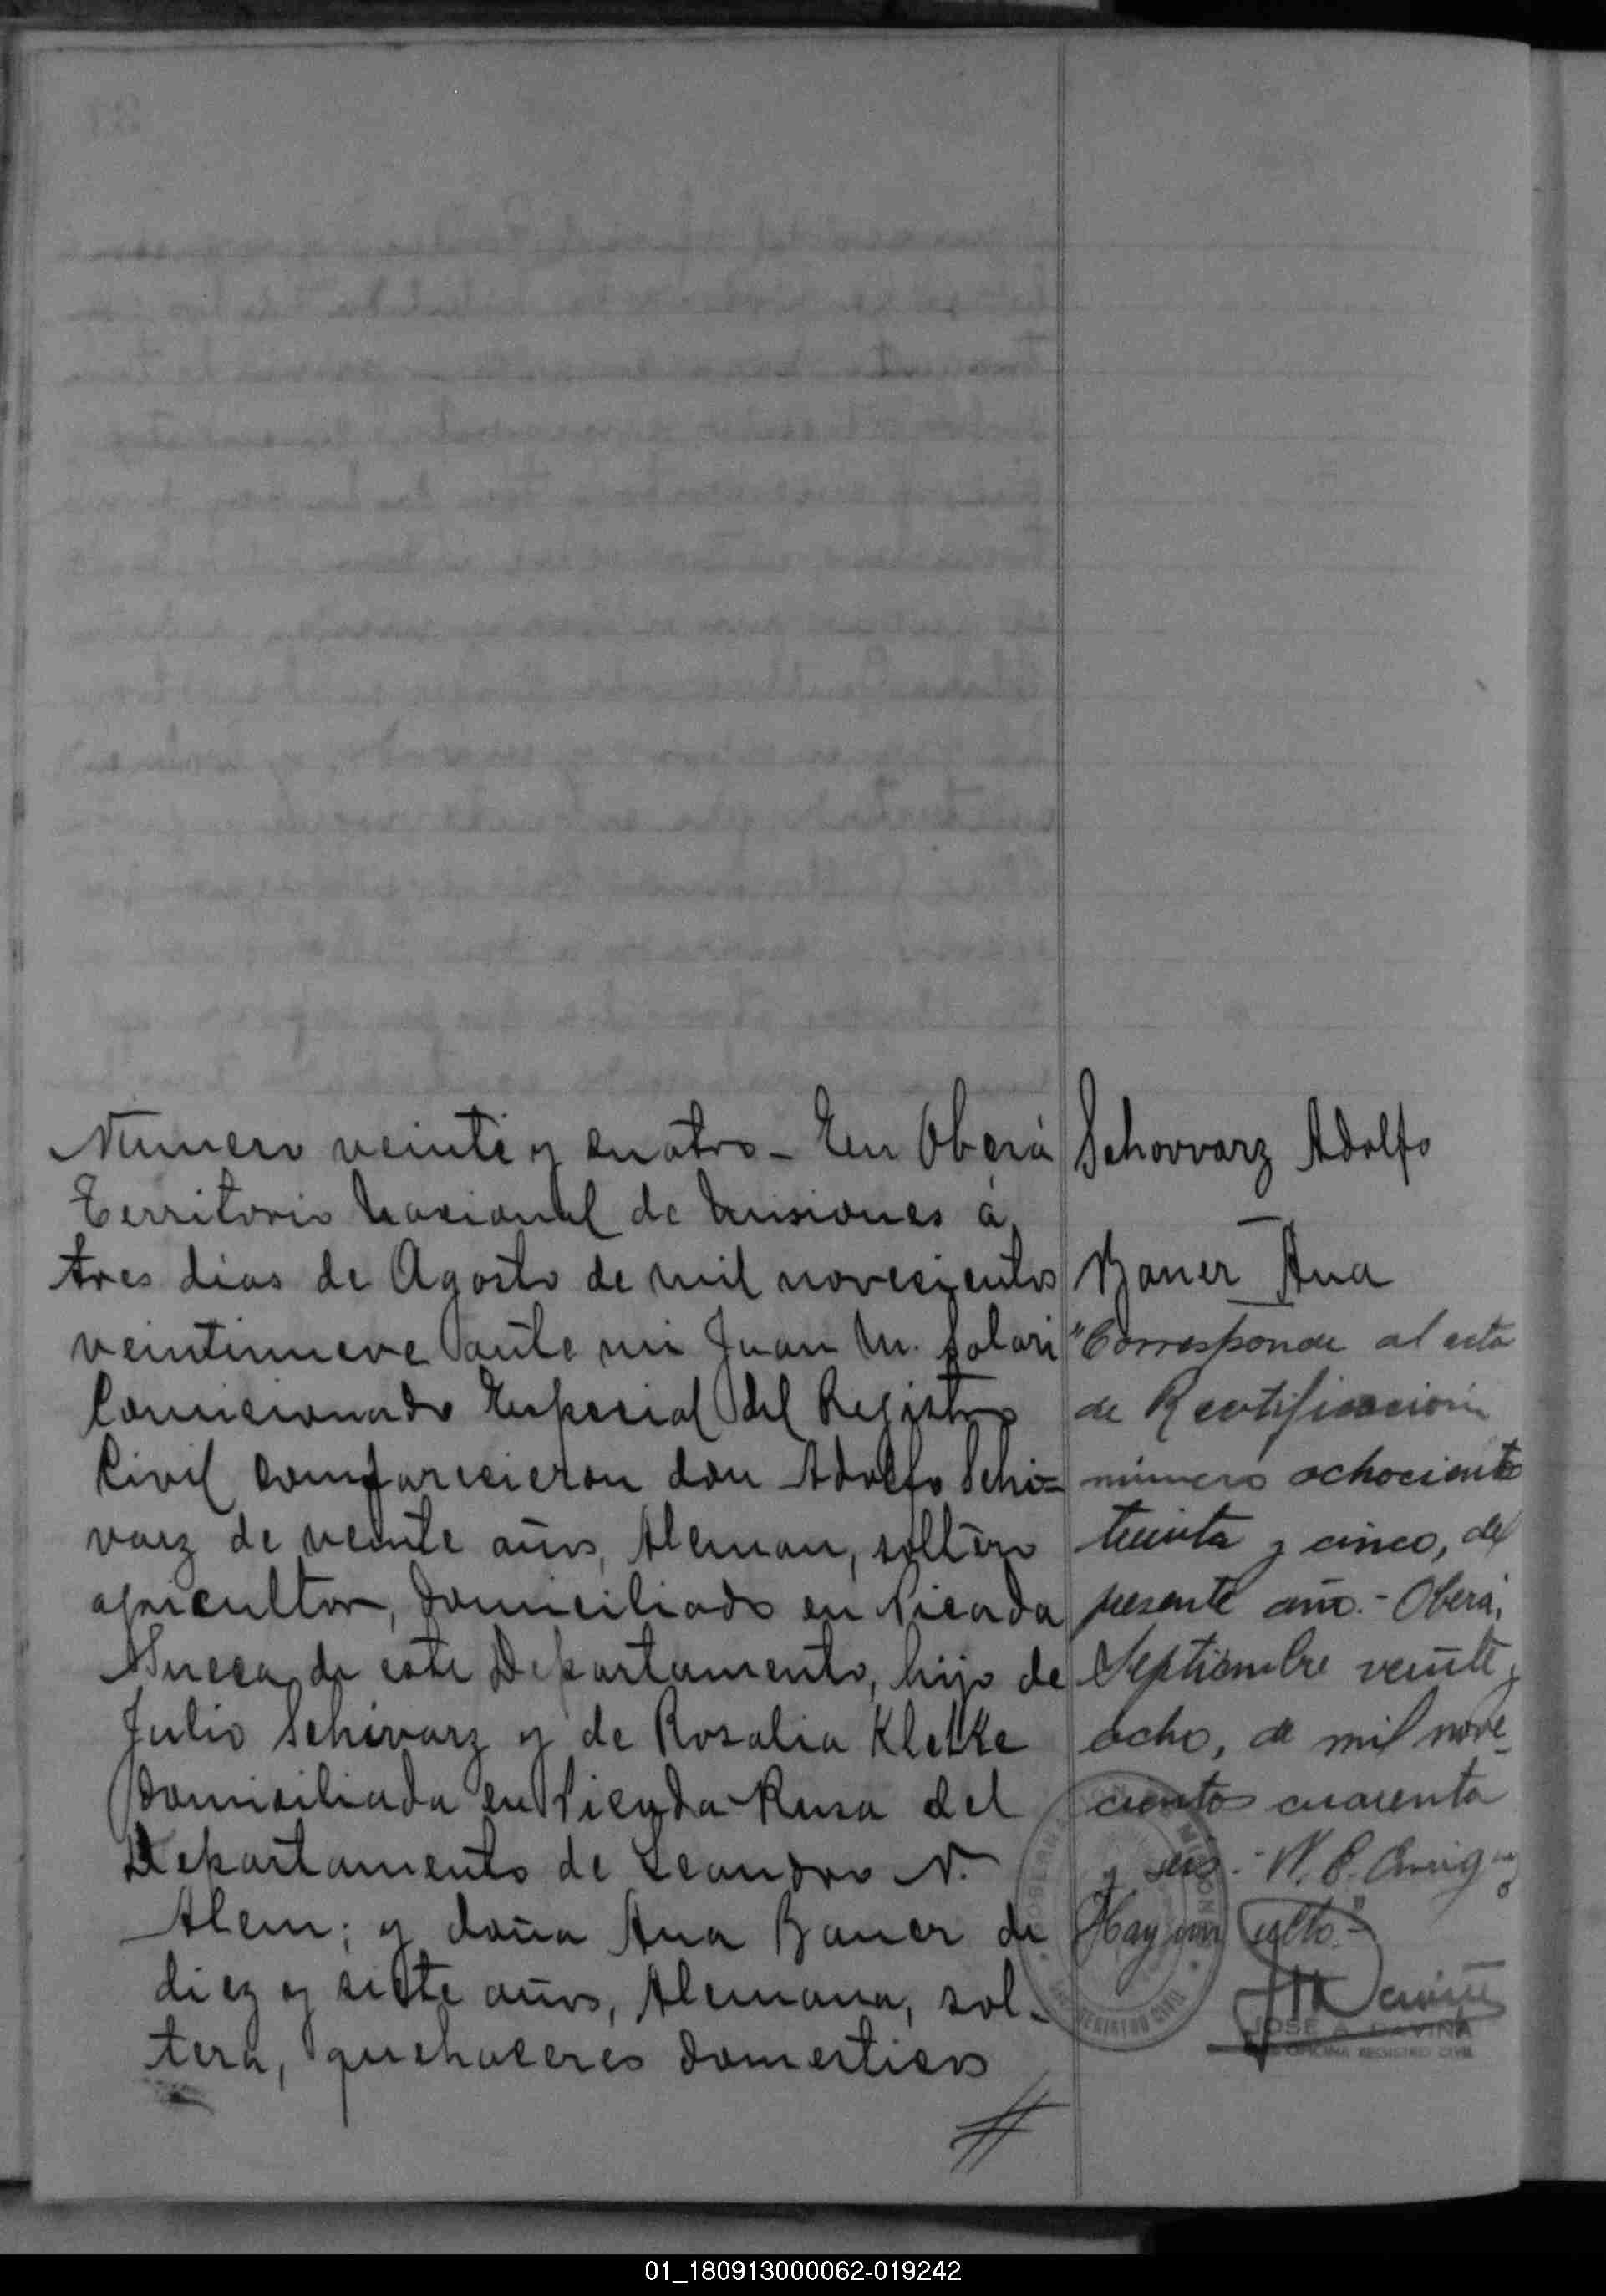 Numero veinte y cuatro - En Oberá
Territorio Nacional de Misiones á
tres dias de Agosto de mil novecientos
veintinueve ante mi Juan M. Solari
Comicionado Especial del Registro
Civil comparecieron don Adolfo Schi=
varz de veinte años, Aleman, soltero
agricultor, domiciliado en Picada
Sueca, de este Departamento, hijo de
Julio Schivarz y de Rosalia Kletke
domiciliada en Picada Rusa del
Departamento de Leandro N.
Alem; y doña Ana Baner de
diez y siete años, Alemana, sol-
tera, quehaceres domesticos
Schovvarz Adolfo
Baner Ana
"Corresponde al acta
de Rectificación
número ochociento
treinta y cinco, del
presente año.- Oberá,
Septiembre veinte y
ocho, de mil nove-
cientos cuarenta
y seis.-
Hay un sello."-
JOSE A. DAVIÑA
OFICINA REGISTRO CIVIL
REGISTRO CIVIL
01_180913000062-019242